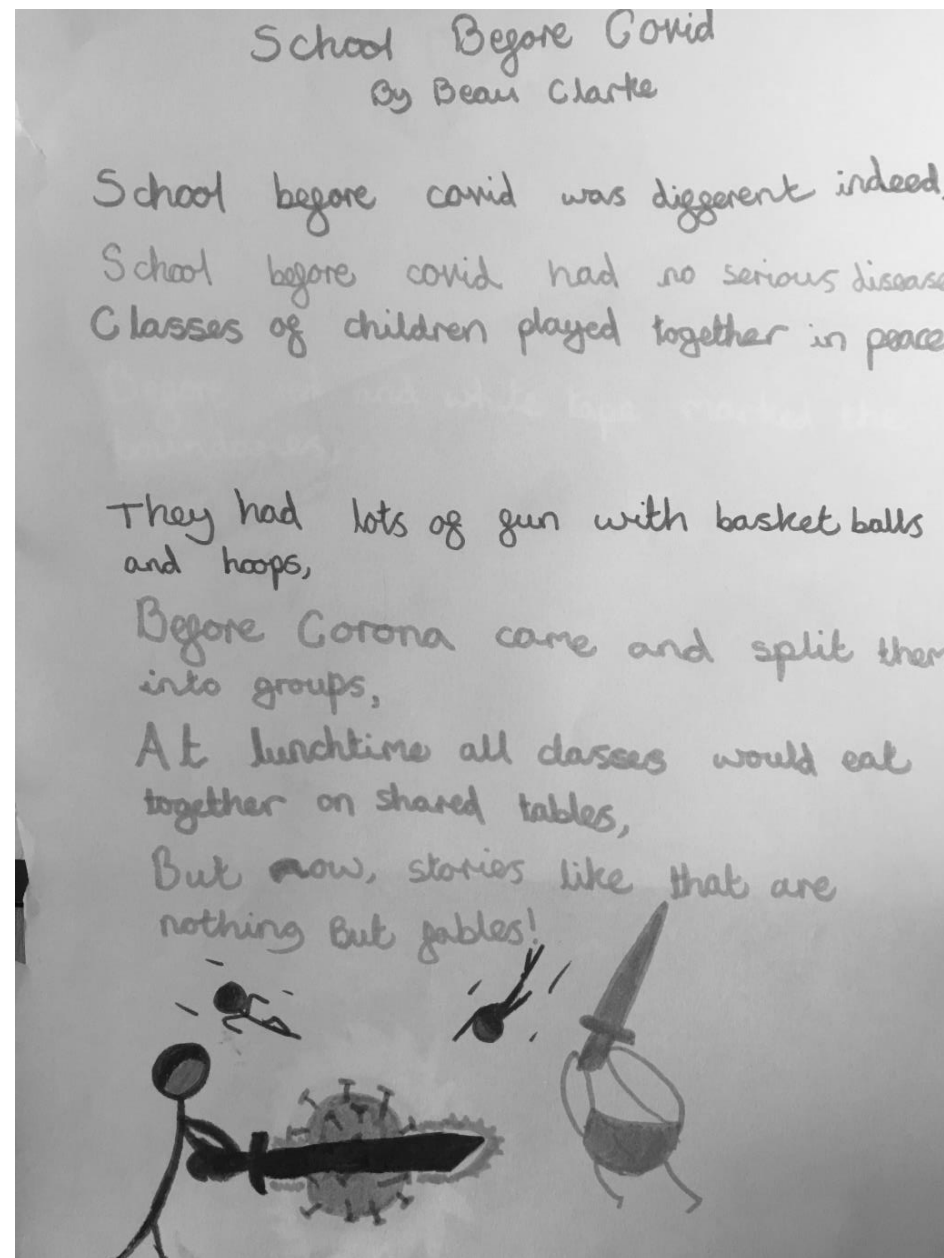 School Before Covid
By Beau Clarke
School before covid was different indeed,
School before covid had no serious disease
Classes of children played together in peace
Before red and white tape marked the
boundaries
They had lots of fun with basket balls
and hoops,
Before Corona came and split them
into groups,
At lunchtime all classes would eat
together on shared tables,
But now, stories like that are
nothing But fables!